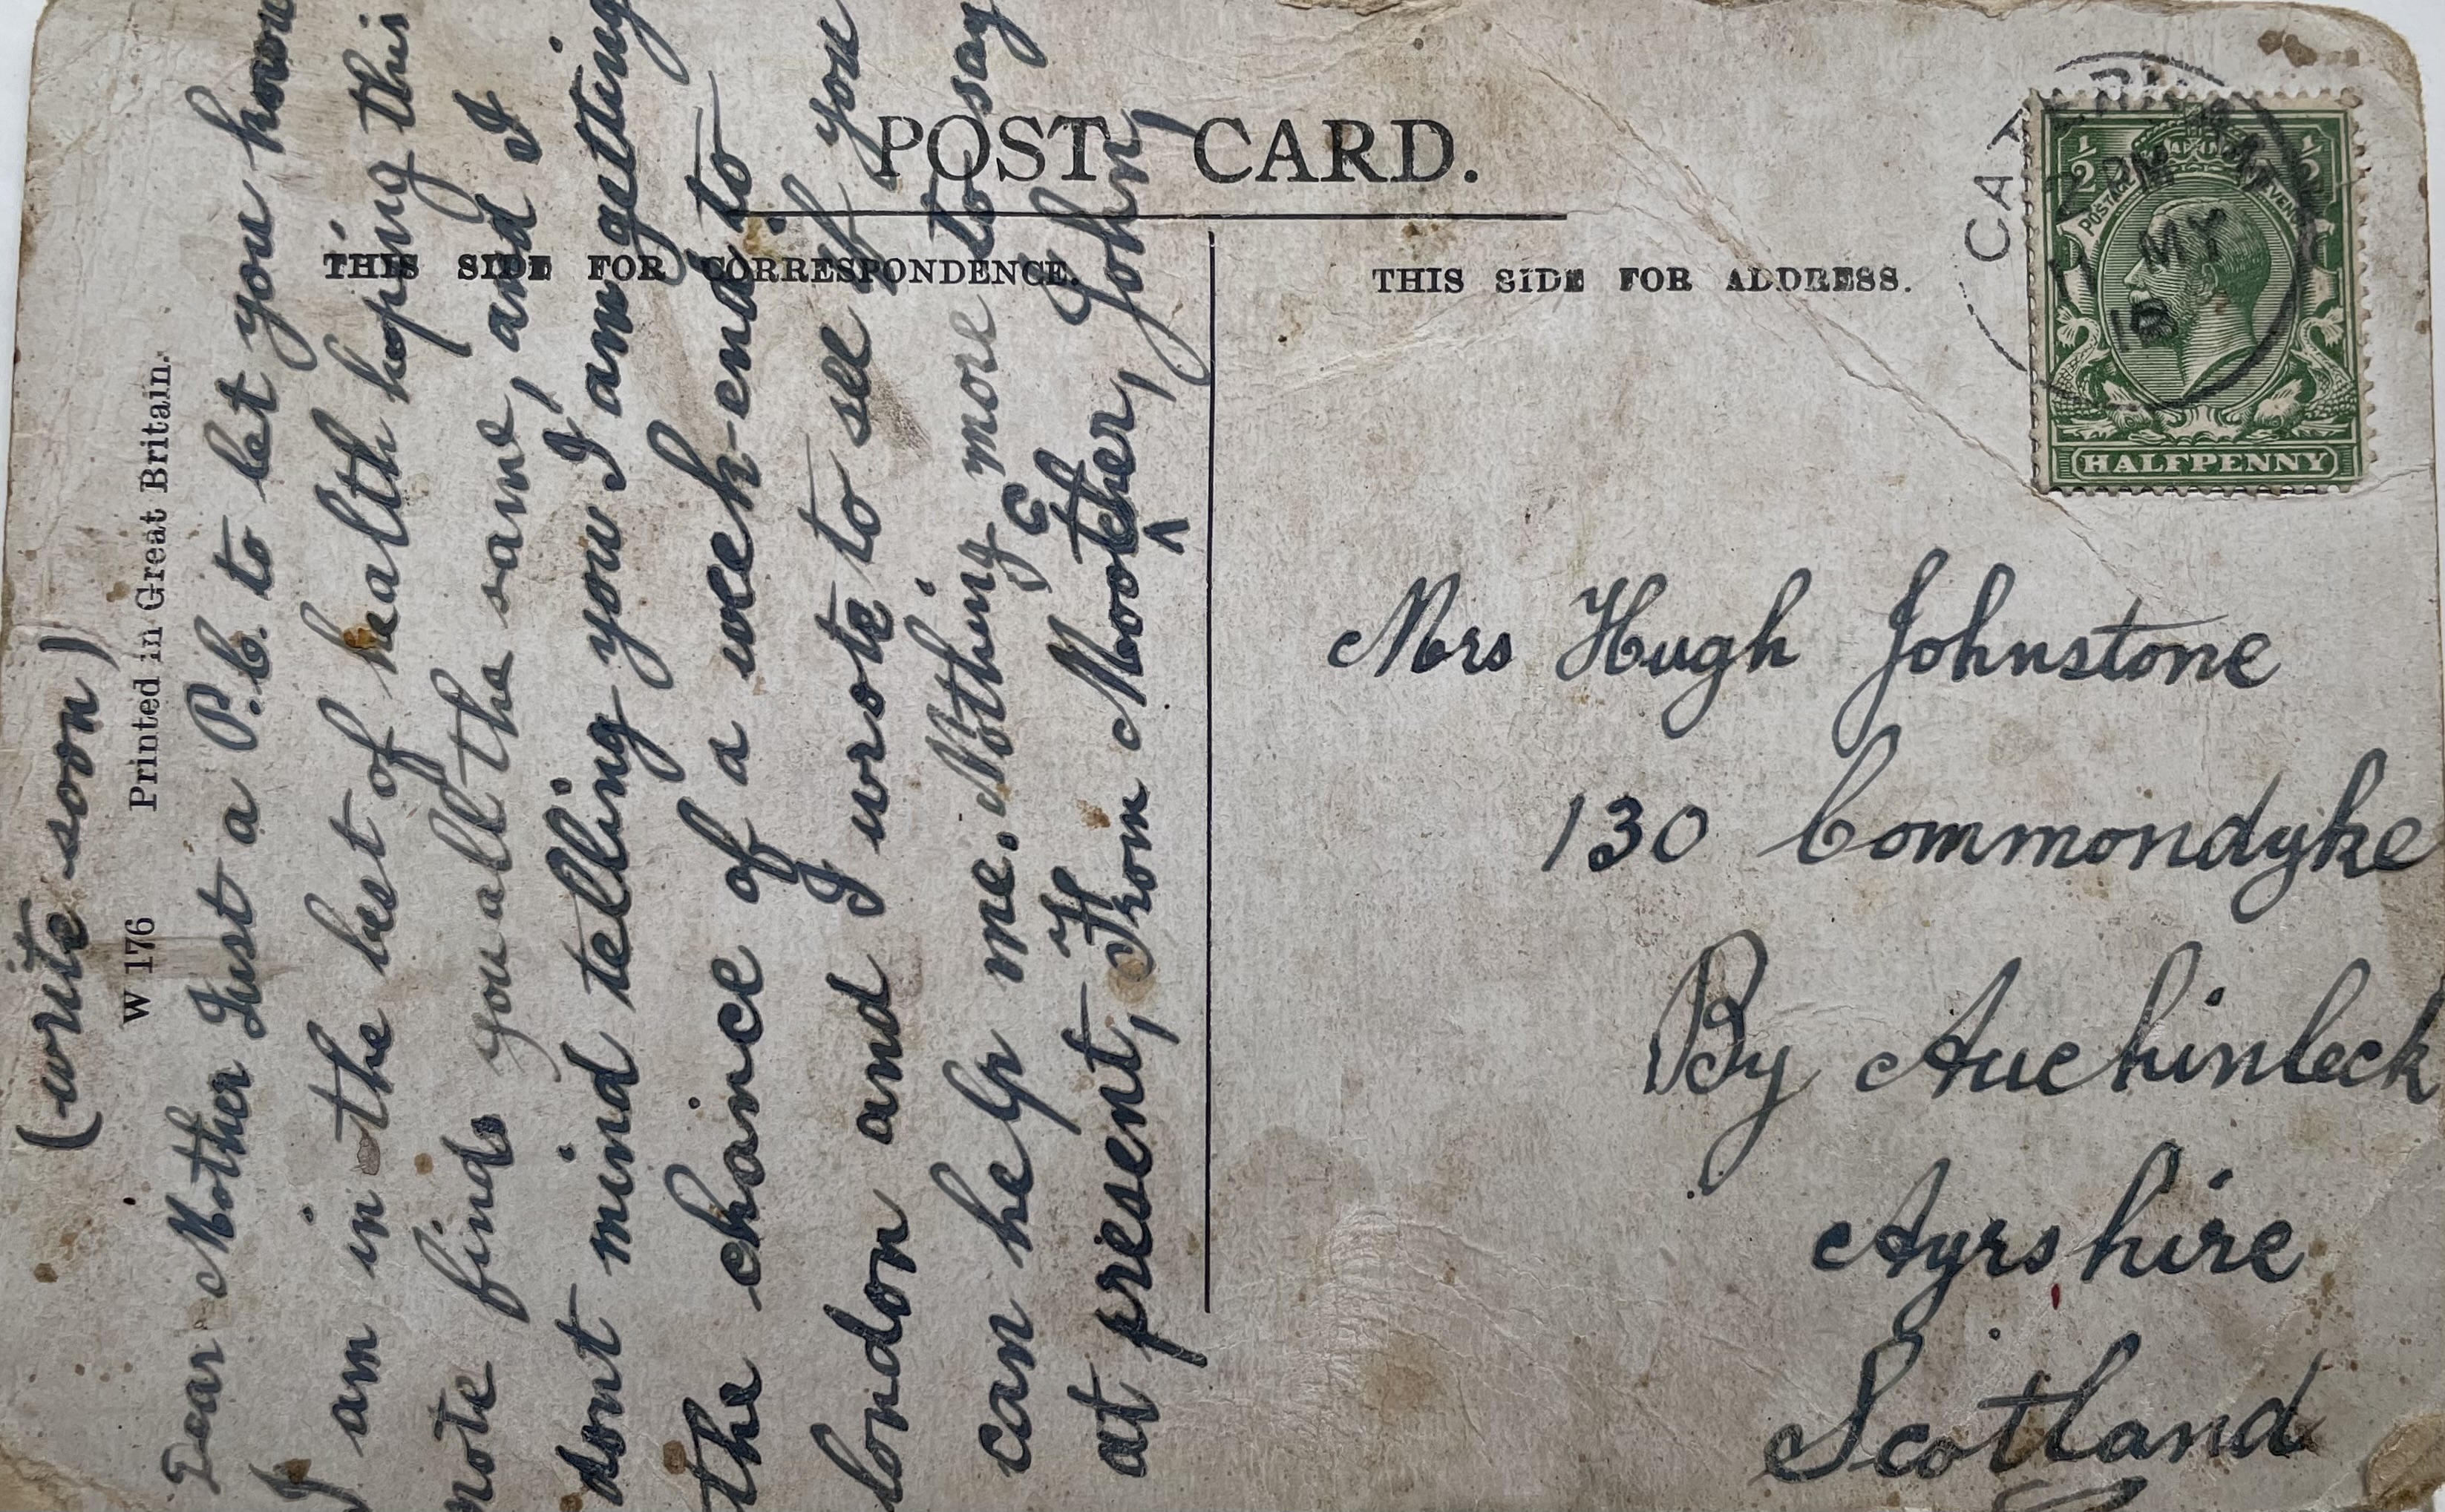 POST CARD.
THIS SIDE FOR CORRESPONDENCE.
THIS SIDE FOR ADDRESS.
W 176 Printed in Great Britain.
(write soon)
Dear Mother Just a P.C. to let you know
I am in the best of health hoping this
note finds you all the same, and I
dont mind telling you I am getting
the chance of a week-end to
London and I wrote to see if you
can help me. Nothing more to say
at present, From John
Mrs Hugh Johnstone
130 Commondyke
By Auchinleck
Ayrshire
Scotland
CATERHAM
MY
18
½ ½
POSTAGE REVENUE
HALFPENNY